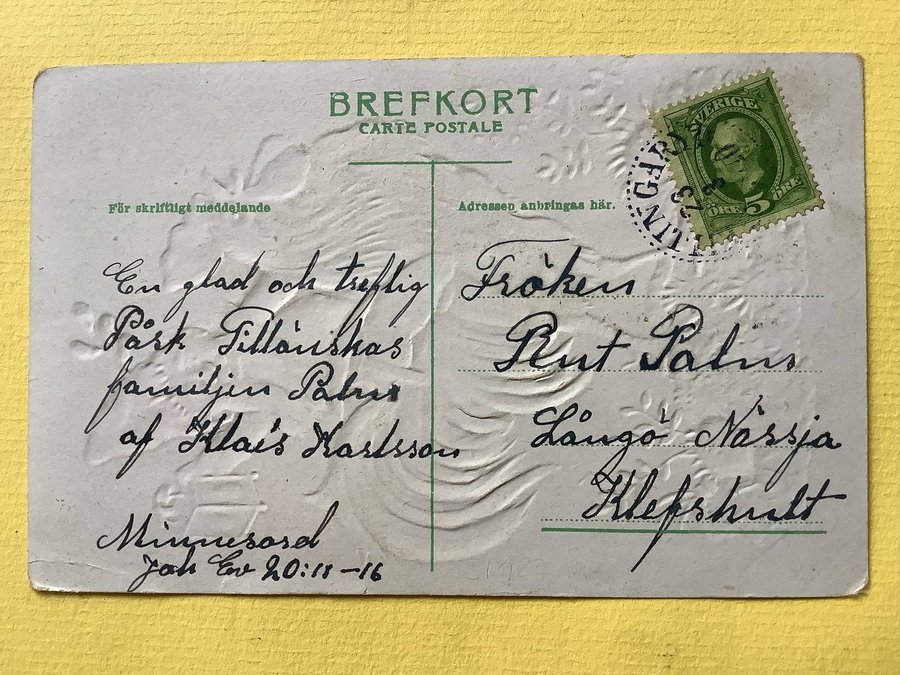 BREFKORT
CARTE POSTALE
För skriftligt meddelande
Adressen anbringas här.
SVERIGE
ÖRE 5 ÖRE
LJUNGARP
23 3
En glad och treflig
Påsk Tillönskas
familjen Palm
af Klas Karlsson
Minnesord
Joh Ev 20:11-16
Fröken
Rut Palm
Långö Nässja
Klefshult